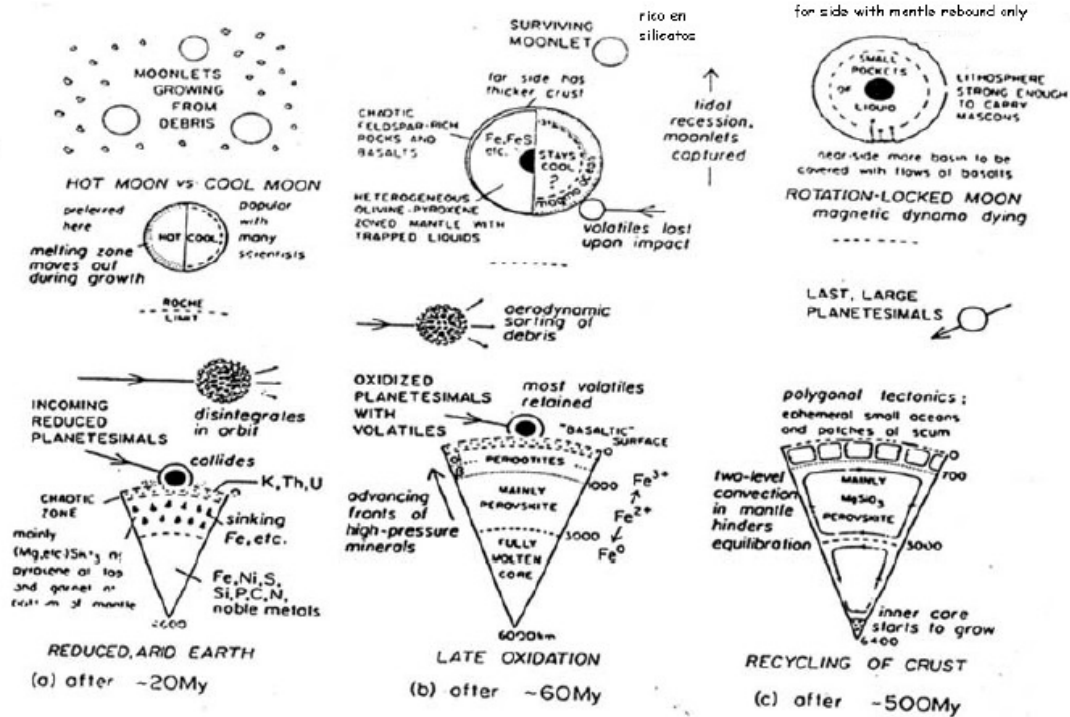 MOONLETS
GROWING
FROM
DEBRIS
HOT MOON vs COOL MOON
preferred
here
popular
with
many
scientists
HOT COOL
melting zone
moves out
during growth
ROCHE
LIMIT
INCOMING
REDUCED
PLANETESIMALS
disintegrates
in orbit
collides
K,Th,U
CHAOTIC
ZONE
sinking
Fe, etc.
mainly
pyroxene at top
and garnet at
of mantle
Fe,Ni,S,
Si,P,C,N,
noble metals
REDUCED, ARID EARTH
(a) after ~20My
SURVIVING
MOONLET
rico en
silicatos
far side has
thicker crust
CHAOTIC
FELDSPAR-RICH
ROCKS AND
BASALTS
Fe,FeS
etc.
STAYS
COOL
?
magma ocean
tidal
recession,
moonlets
captured
HETEROGENEOUS
OLIVINE-PYROXENE
ZONED MANTLE WITH
TRAPPED LIQUIDS
volatiles lost
upon impact
aerodynamic
sorting of
debris
OXIDIZED
PLANETESIMALS
WITH
VOLATILES
most volatiles
retained
"BASALTIC"
SURFACE
0
PERIDOTITES
1000
MAINLY
PEROVSKITE
3000
FULLY
MOLTEN
CORE
advancing
fronts of
high-pressure
minerals
Fe3+
Fe2+
Fe0
6000km
LATE OXIDATION
(b) after ~60My
for side with mantle rebound only
SMALL
POCKETS
OF
LIQUID
LITHOSPHERE
STRONG ENOUGH
TO CARRY
MASCONS
near-side mare basin to be
covered with flows of basalts
ROTATION-LOCKED MOON
magnetic dynamo dying
LAST, LARGE
PLANETESIMALS
polygonal tectonics;
ephemeral small oceans
and patches of scum
0
700
two-level
convection
in mantle
hinders
equilibration
MAINLY
MgSiO3
PEROVSKITE
3000
inner core
starts to grow
6400
RECYCLING OF CRUST
(c) after ~500My